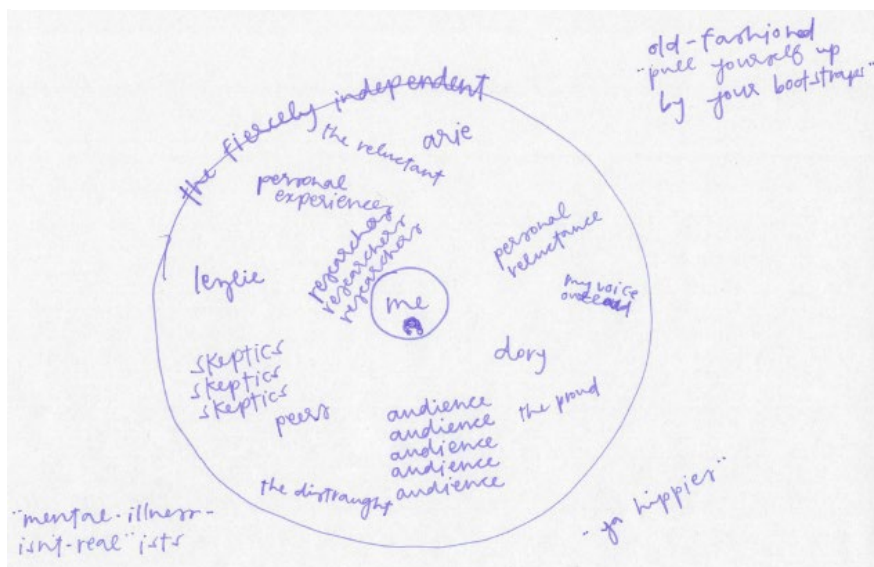 old-fashioned
"pull yourself up
by your bootstraps"
the fiercely independent
the reluctant
arie
personal
experience
researchers
researchers
researchers
personal
reluctance
my voice
leslie
me
dory
skeptics
skeptics
skeptics
peers
audience
audience
audience
audience
audience
the proud
the distraught
"mental-illness-
isnt-real"ists
"ya hippies"